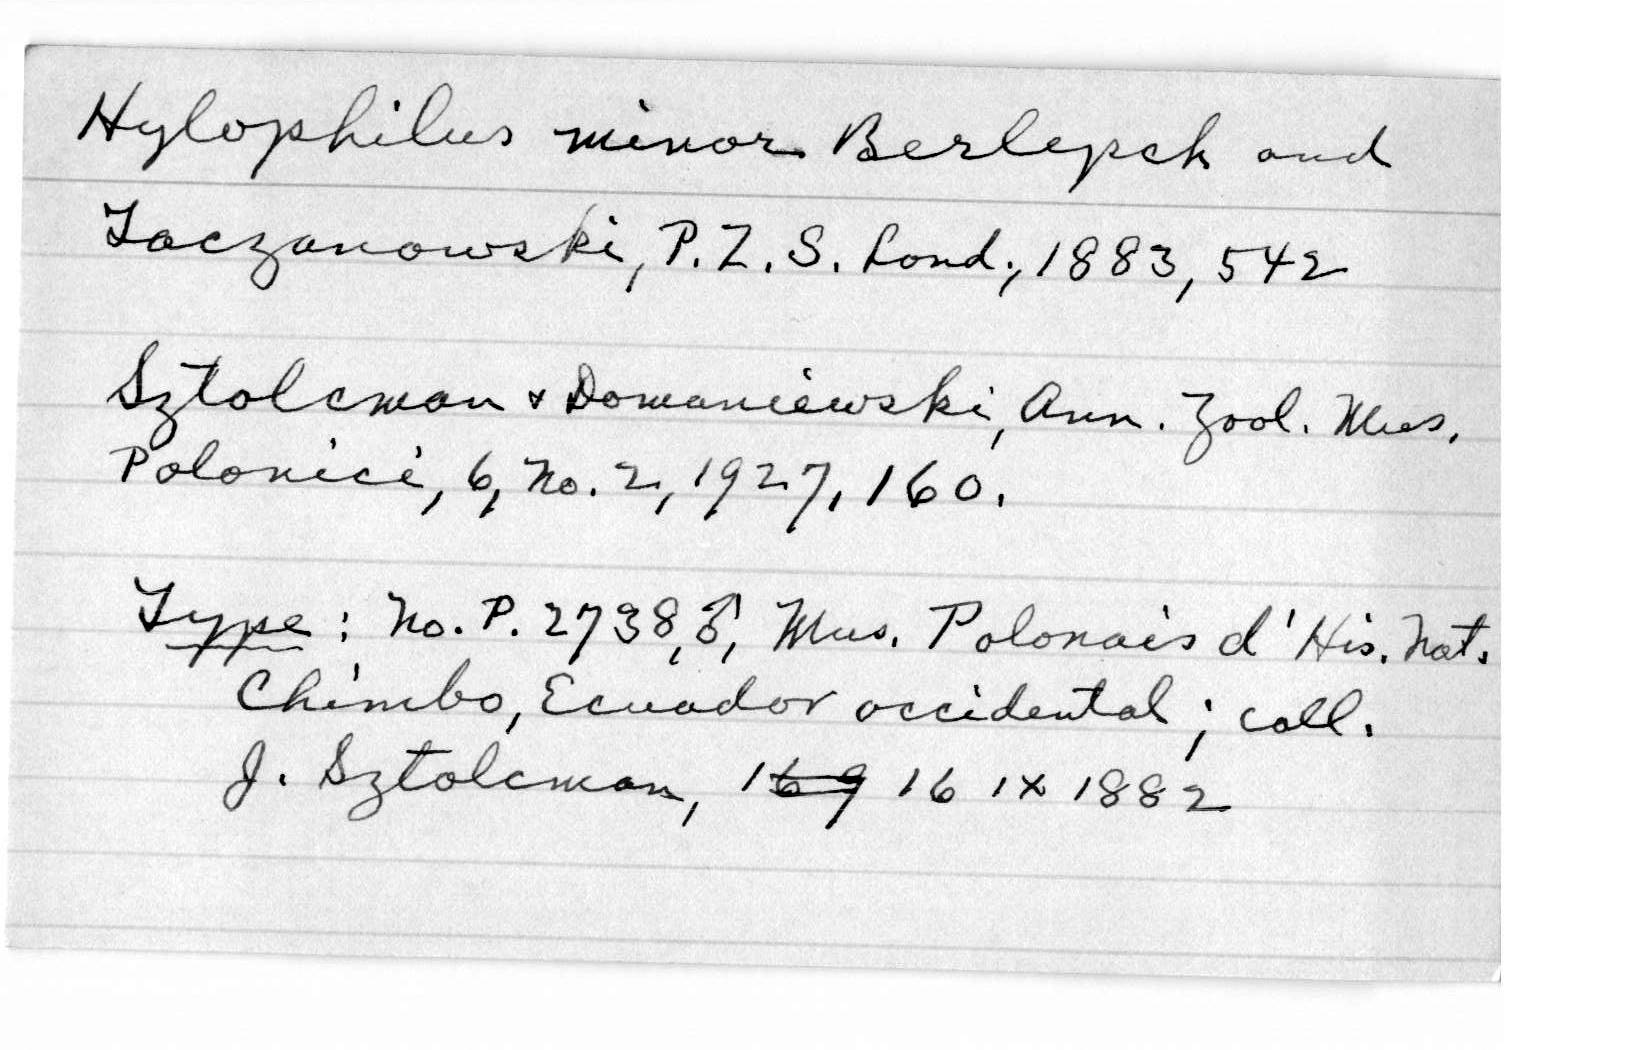 Hylophilus minor Berlepsch and
Taczanowski, P. Z. S. Lond., 1883, 542
Sztolcman & Domaniewski, Ann. Zool. Mus.
Polonici, 6, No. 2, 1927, 160.
Type: No. P. 2738, ♂, Mus. Polonais d'His. Nat.
Chimbo, Ecuador occidental; coll.
J. Sztolcman, 16 9 16 IX 1882